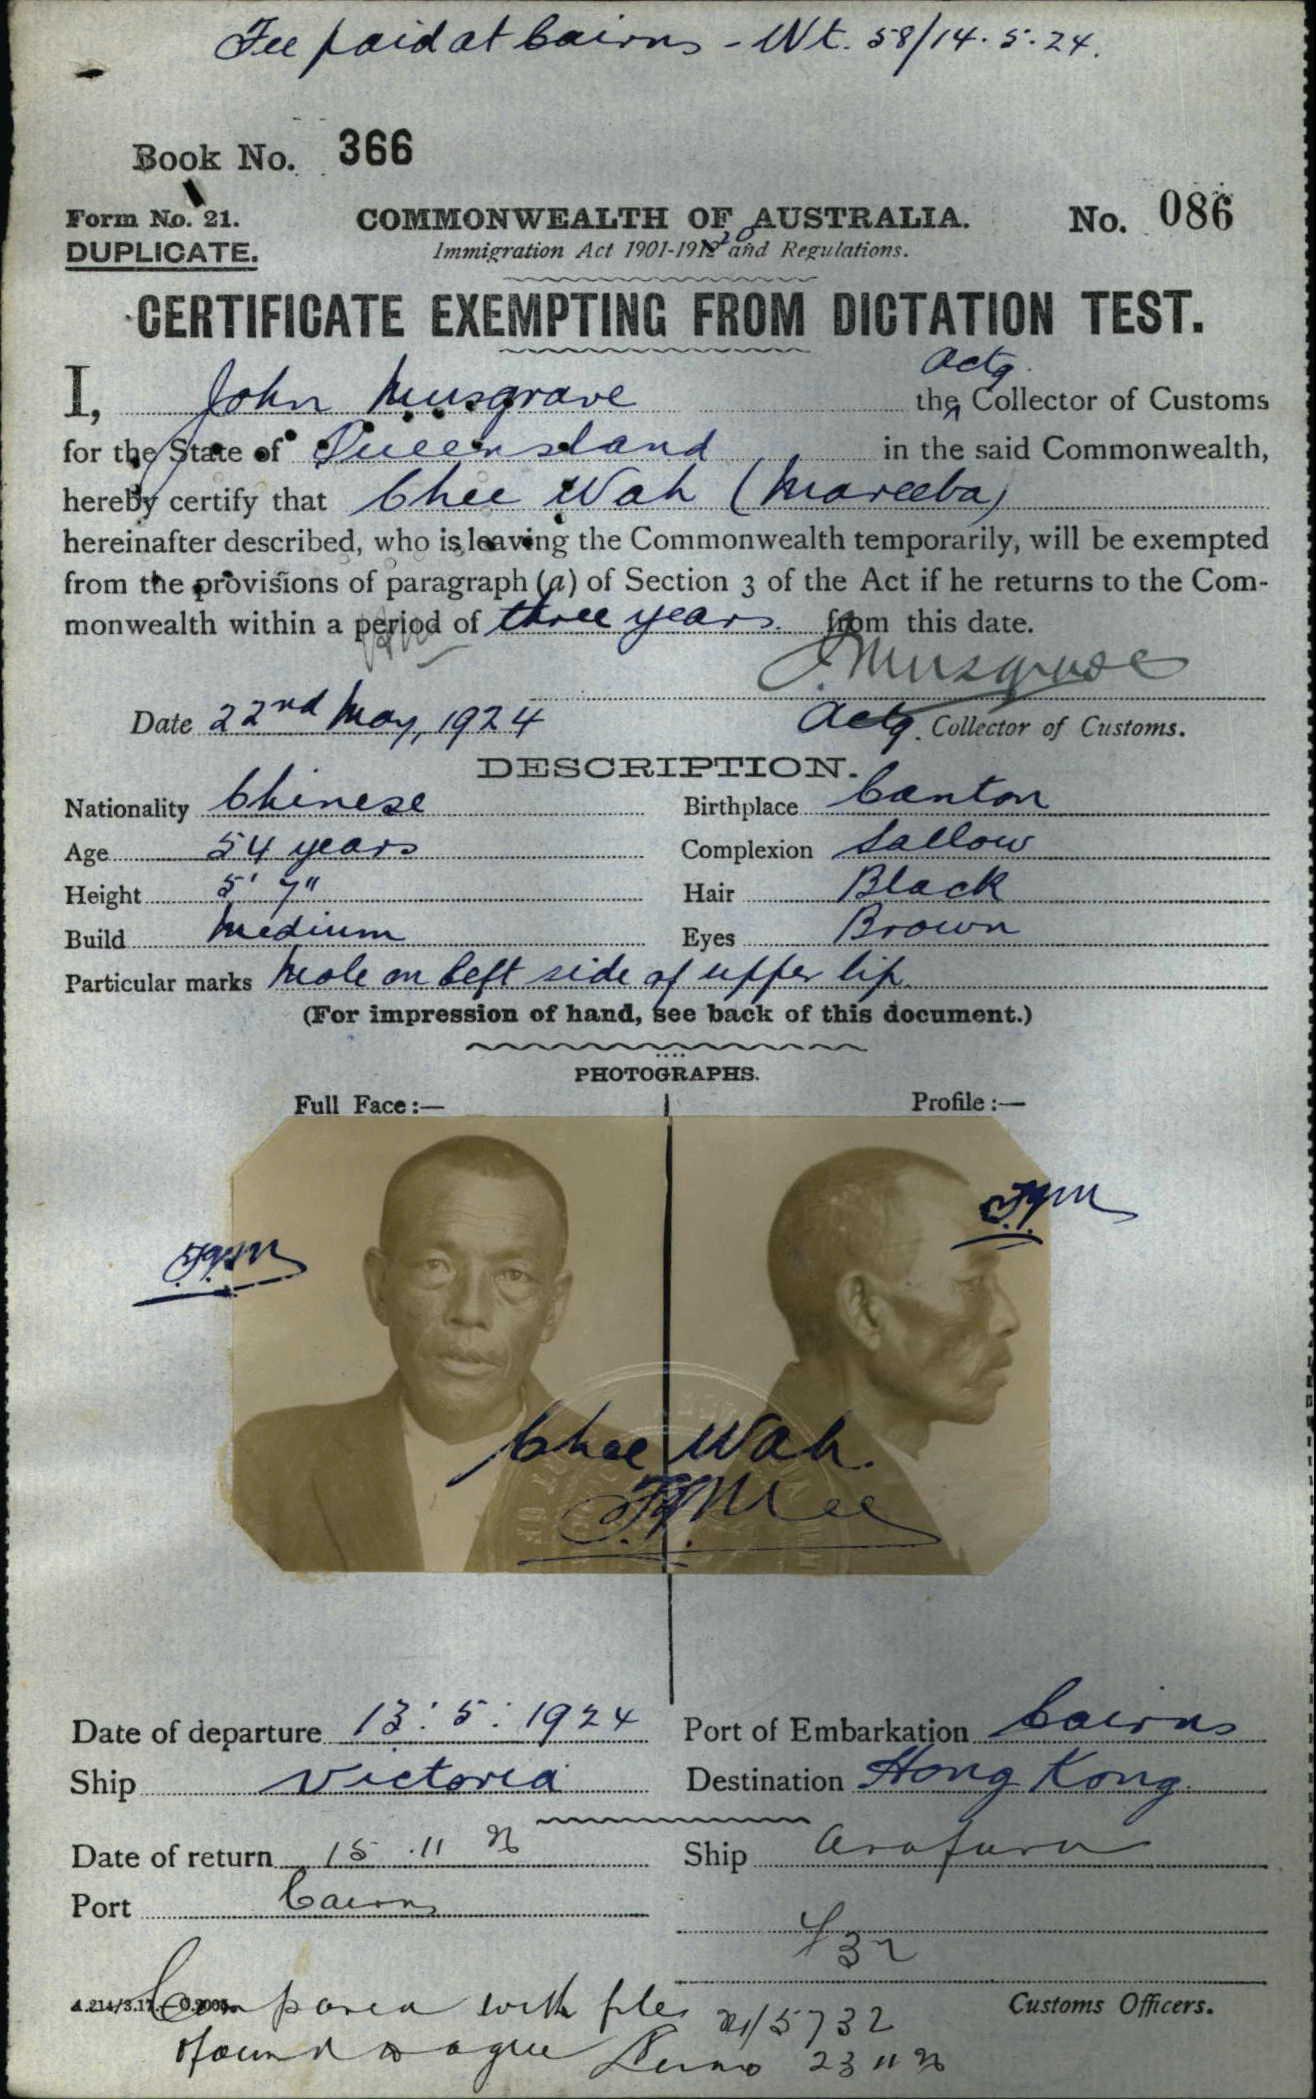 Fee paid at Cairns - Wt. 58/14.5.24.
Book No. 366
Form No. 21.
COMMONWEALTH OF AUSTRALIA.
No. 086
DUPLICATE.
Immigration Act 1901-1912 20 and Regulations.
CERTIFICATE EXEMPTING FROM DICTATION TEST.
I, John Musgrave the Actg. Collector of Customs
for the State of Queensland in the said Commonwealth,
hereby certify that Chee Wah (Mareeba)
hereinafter described, who is leaving the Commonwealth temporarily, will be exempted
from the provisions of paragraph (a) of Section 3 of the Act if he returns to the Com-
monwealth within a period of three years from this date.
J. Musgrave
Date 22nd May, 1924 Actg. Collector of Customs.
DESCRIPTION.
Nationality Chinese Birthplace Canton
Age 54 years Complexion Sallow
Height 5' 7" Hair Black
Build Medium Eyes Brown
Particular marks Mole on left side of upper lip
(For impression of hand, see back of this document.)
PHOTOGRAPHS.
Full Face:— Profile:—
Chee Wah.
Date of departure 13.5.1924 Port of Embarkation Cairns
Ship Victoria Destination Hong Kong
Date of return 15.11.26 Ship Arafura
Port Cairns
Compared with files
Customs Officers.
found to agree 23 11 26